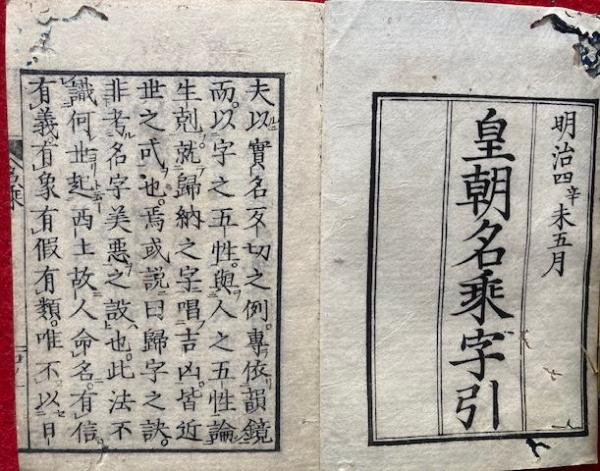 明治四辛未五月
皇朝名乘字引
夫以實名反切之例。專依韻鏡
而。以字之五性。與人之五性論
生剋。就歸納之字唱吉凶。皆近
世之弍也。焉或説曰歸字之訣。
非考名字美惡之設也。此法不
識何世起西土故人命名。有信
有義。有象有假有類。唯不以日
名乘